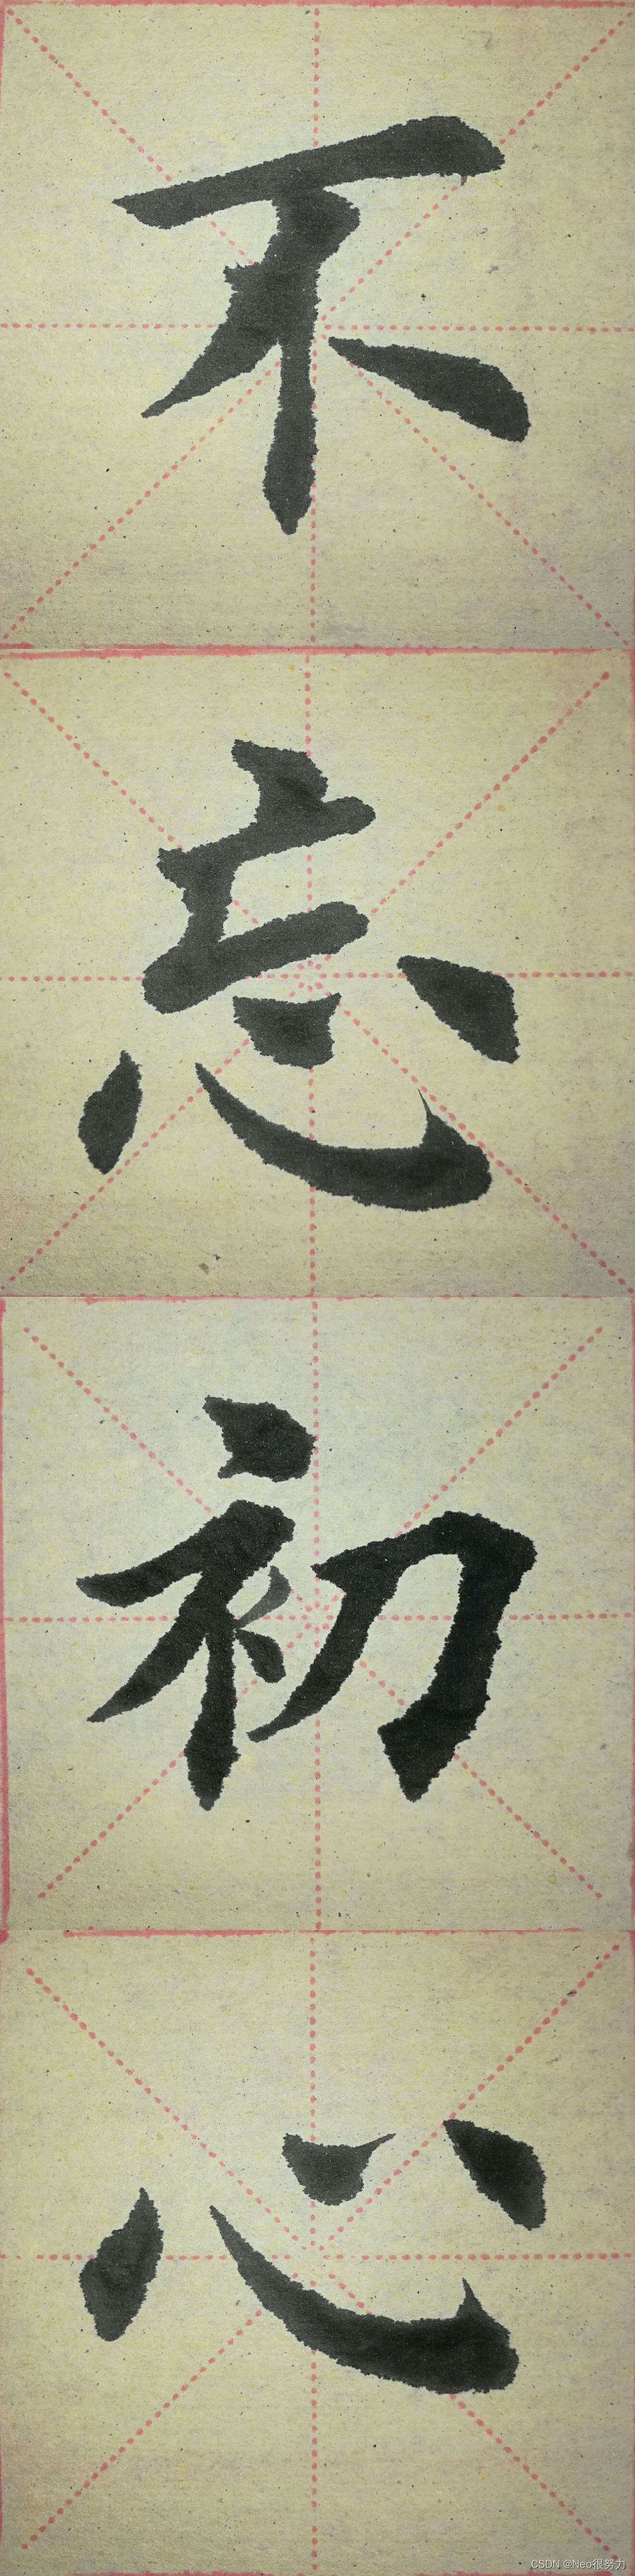 不
忘
初
心
CSDN @Neo很努力